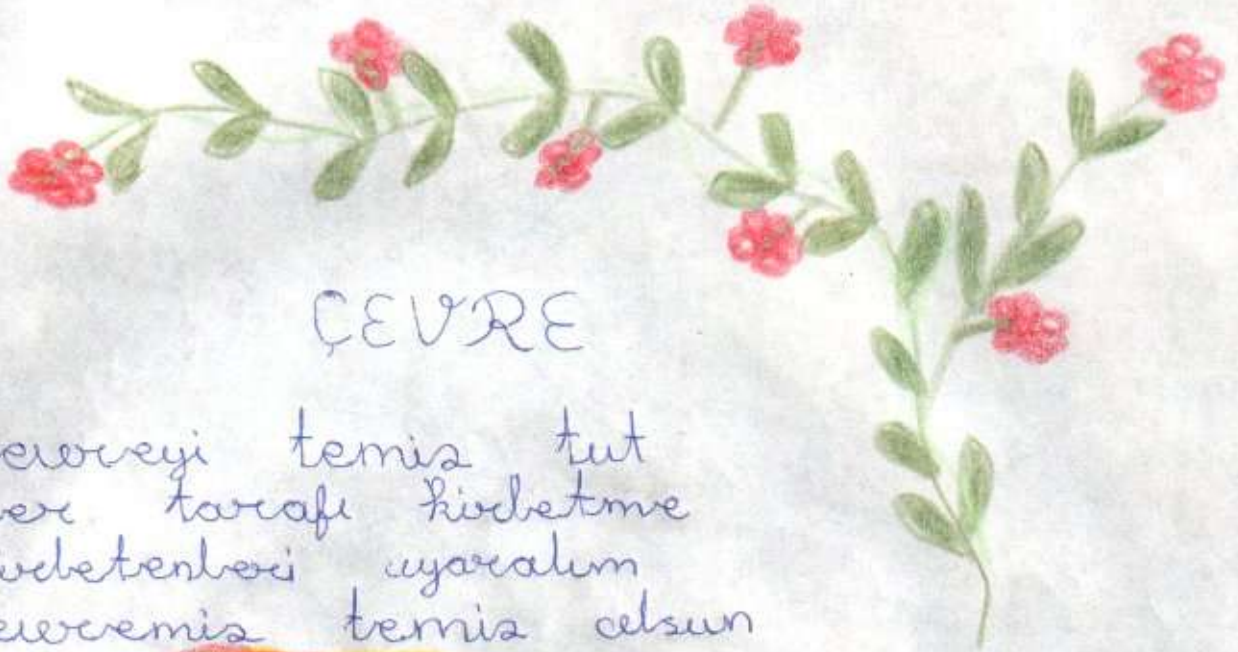 ÇEVRE
evreyi temiz tut
er tarafı kirletme
irletenleri uyaralım
evremiz temiz olsun